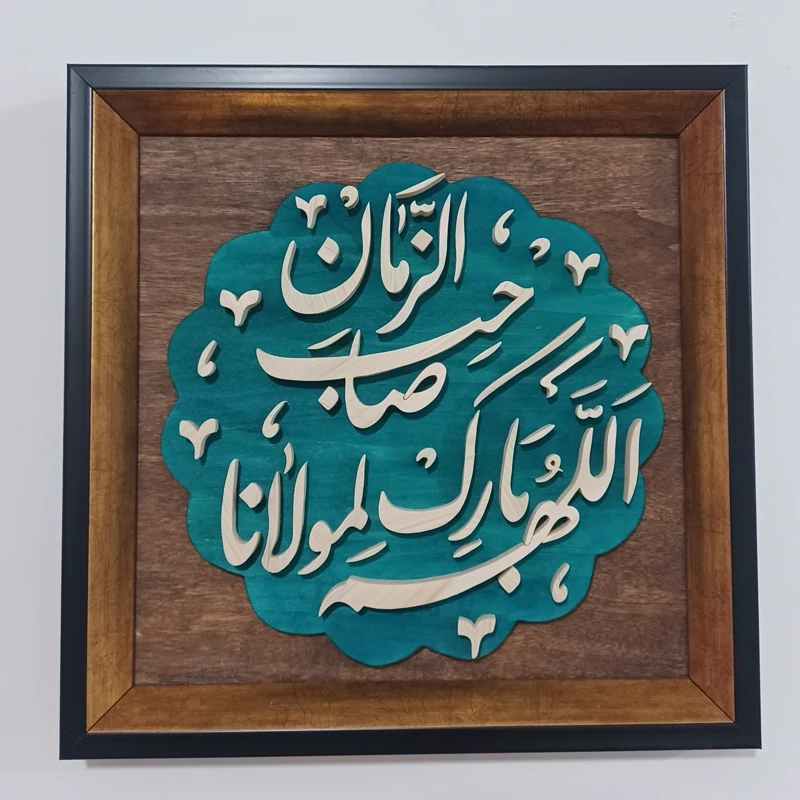 اللّهم بارك لمولانا
صاحب
الزّمان